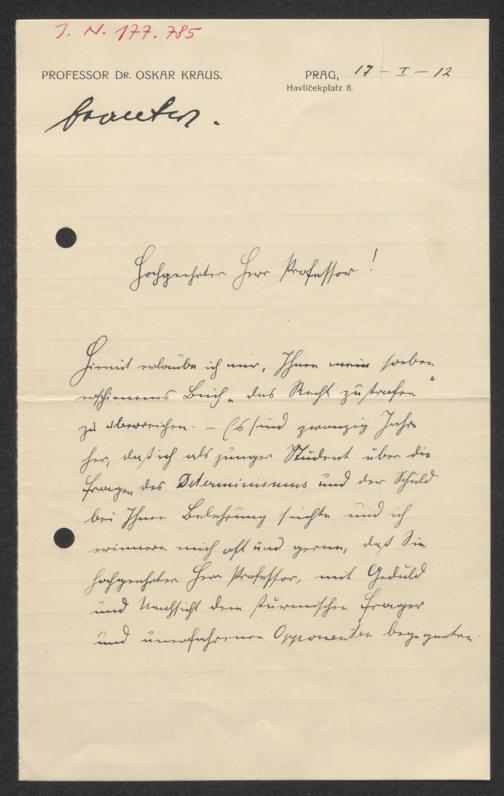 J. N. 177.785
PROFESSOR DR. OSKAR KRAUS.
PRAG, 17 - I - 12
Havlíčekplatz 8.
Hochgeehrter Herr Professor!
Hiemit erlaube ich mir, Ihnen mein soeben
erschienenes Buch „das Recht zu strafen"
zu überreichen. – Es sind zwanzig Jahre
her, daß ich als junger Student über die
Fragen des Determinismus und der Schuld
bei Ihnen Belehrung suchte und ich
erinnere mich oft und gerne, daß Sie,
hochgeehrter Herr Professor, mit Geduld
und Nachsicht dem stürmischen Frager
und unerfahrenen Opponenten begegneten.